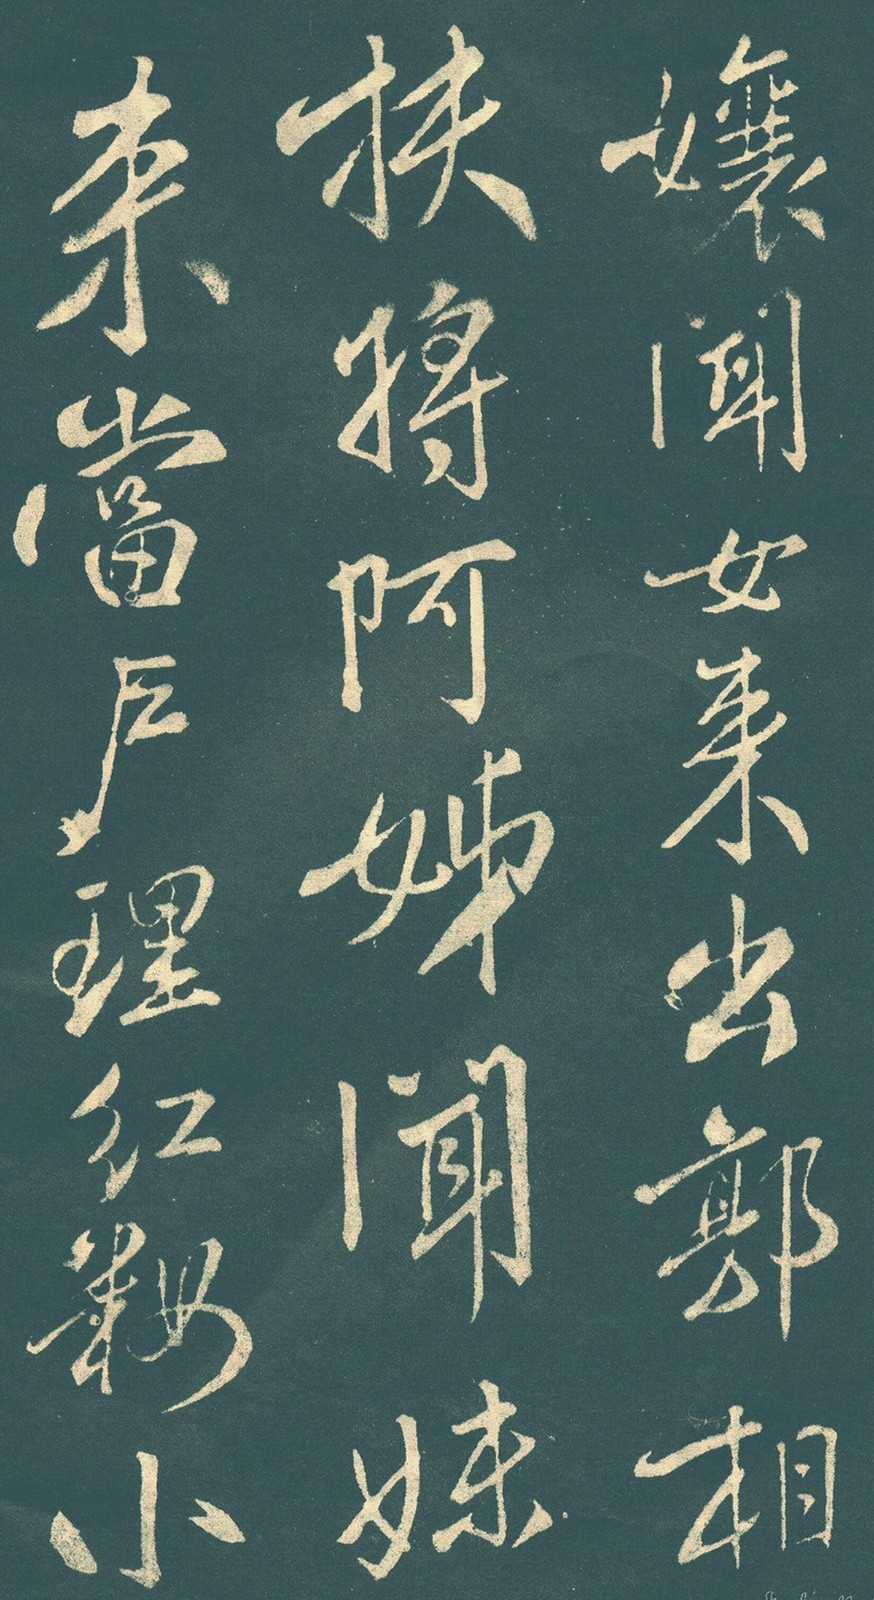 孃聞女來出郭相
扶將阿姊聞妹
來當戶理紅妝小